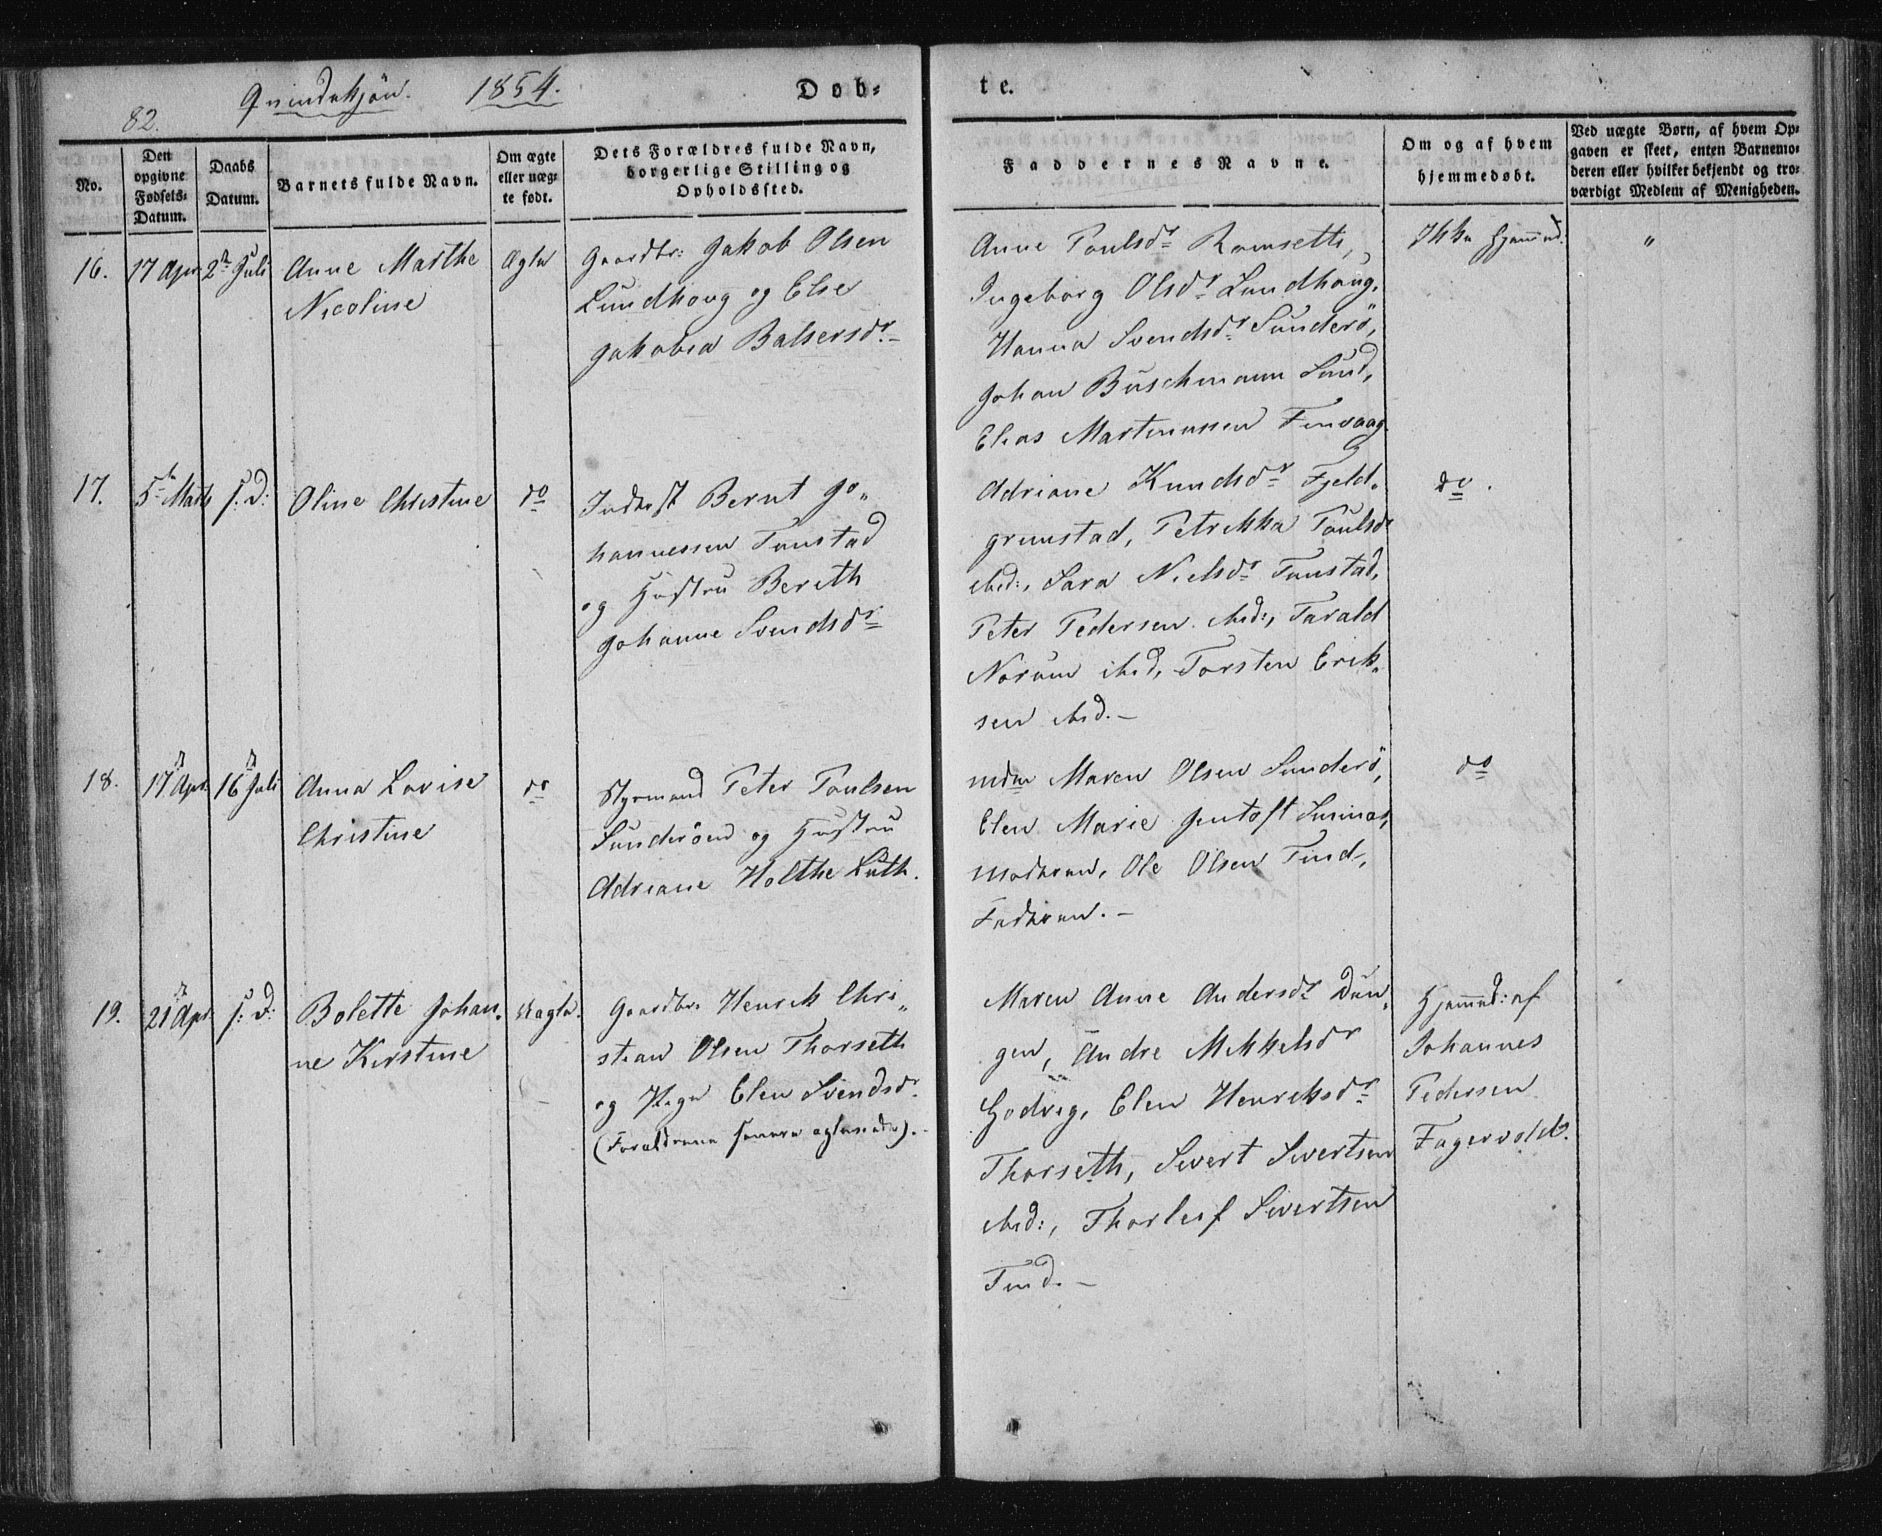 82.
Qvindekjön. 1854.
Döb-
te.
No.
Den opgivne Fødsels-Datum.
Daabs Datum.
Barnets fulde Navn.
Om ægte eller uægte født.
Dets Forældres fulde Navn, borgerlige Stilling og Opholdssted.
Faddernes Navne.
Om og af hvem hjemmedøbt.
Ved uægte Børn, af hvem Opgaven er skeet, enten Barnemoderen eller hvilket bekjendt og troværdigt Medlem af Menigheden.
16.
17 Apr.
2den Juli
Anne Marthe
Nicoline
Ægte
Gaardbr: Jakob Olsen
Lundhoug og Else
Jakobea Balsersdr.
Anne Poulsdr. Ramseth,
Ingeborg Olsdr. Lundhoug,
Hanna Svendsdr. Sunderö,
Johan Buschmann Sund,
Elias Martinussen Finvaag
Ikke hjemmed.
"
17.
5te Marts
s: D:
Oline Christine
do
Inderst Bernt Jo-
hannessen Tunstad
og Hustru Bereth
Johanne Svendsdr.
Adriane Knudsdr. Fjeld-
grimstad, Petrikka Poulsdr
ibid:, Sara Nielsdr. Tunstad,
Peter Pedersen ibid:, Tarald
Norum ibid, Torsten Erik-
sen ibid. -
do.
18.
17 Apr.
16 Juli
Anna Lovise
Christine
do
Styrmand Peter Poulsen
Sunderöen og Hustru
Adriane Holthe Luth.
Mdm Maren Olsen Sunderö,
Elen Marie Jentoft
Moderen, Ole Olsen Tind,
Faderen. -
do
19.
21 Apr
s: D:
Bolette Johan-
ne Kirstine
Uægte.
Gaardbr. Henrik Chri-
stian Olsen Thorseth
og Pige Elen Svendsdr.
(Forældrene senere ægteviede).
Maren Anne Andersdr. Dun-
gen, Andre Mikkelsdr
Godvig, Elen Henriksdr.
Thorseth, Sivert Sivertsen
ibid:, Thorleif Sivertsen
Tind. -
Hjemmed: af
Johannes
Pedersen
Fagervold.